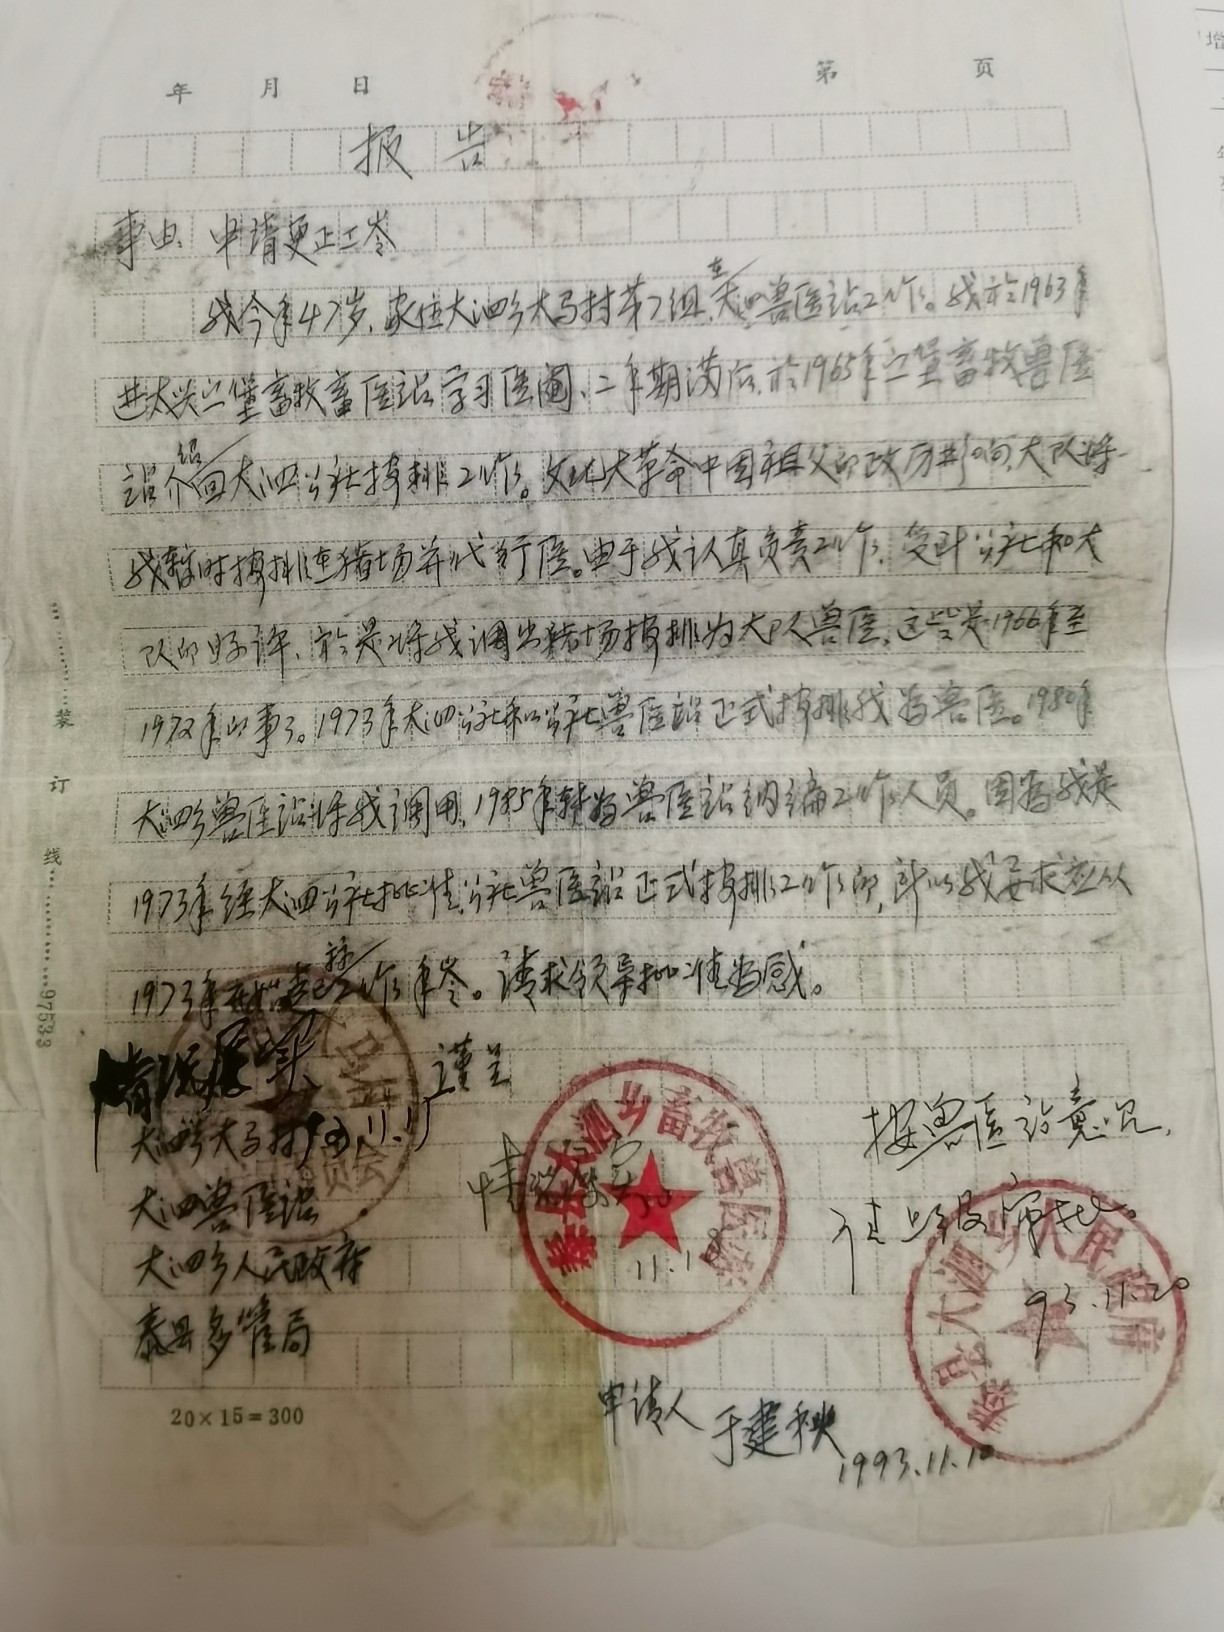 年 月 日 第 页
报告
事由：申请更正工令
我今年47岁，家住大泗乡大马村第7组，在大泗兽医站工作。我於1963年
进太兴广堡畜牧畜医站学习医阉，二年期满后，於1965年广堡畜牧兽医
站介绍回大泗公社按排工作。文化大革命中因祖父的政历问题，大队将
我暂时按排在猪场并代行医。由于我认真负责工作，受到公社和大
队的好评，於是将我调出猪场按排为大队兽医，这些是1966年至
1972年的事了。1973年大泗公社和公社兽医站正式按排我为兽医。1980年
大泗乡兽医站将我调用，1985年转为兽医站纳编工作人员。因为我是
1973年经大泗公社批准，公社兽医站正式按排工作的，所以我要求应从
1973年 工作年令。请求领导批准为感。
情况属实 谨呈
大泗乡大马村 93.11.15
大泗兽医站
大泗乡人民政府
泰县多管局
情况属实
11.18
泰县大泗乡畜牧兽医站
按兽医站意见，
请上级审批。
93.11.20
泰县大泗乡人民政府
申请人 于建秧
1993.11.10
20×15=300
装 订 线 97533